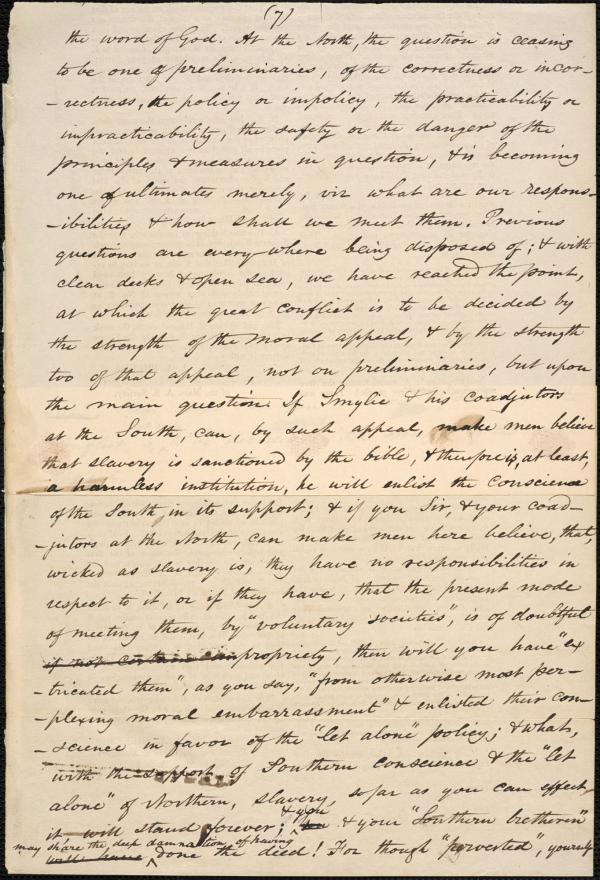 (7)
the word of God. At the North, the question is ceasing
to be one of preliminaries, of the correctness or incor-
-rectness, the policy or impolicy, the practicability or
impracticability, the safety or the danger of the
principles & measures in question, & is becoming
one of ultimates merely, viz what are our respons-
-ibilities & how shall we meet them. Previous
questions are every-where being disposed of; & with
clear decks & open sea, we have reached the point,
at which the great conflict is to be decided by
the strength of the moral appeal, & by the strength
too of that appeal, not on preliminaries, but upon
the main question. If Smylie & his coadjutors
at the South, can, by such appeal, make men believe
that slavery is sanctioned by the bible, & therefore is, at least,
a harmless institution, he will enlist the conscience
of the South in its support; & if you Sir, & your coad-
-jutors at the North, can make men here believe, that,
wicked as slavery is, they have no responsibilities in
respect to it, or if they have, that the present mode
of meeting them, by "voluntary societies", is of doubtful
if not certain impropriety, then will you have "ex
-tricated them", as you say, "from otherwise most per-
-plexing moral embarrassment" & enlisted their con-
-science in favor of the "let alone" policy; & what,
with the support of Southern conscience & the "let
alone" of Northern, slavery, so far as you can effect,
& you
it will stand forever; & your "Southern bretheren"
may share the deep damnation, of having
will have done the deed! For though "perverted", yourself